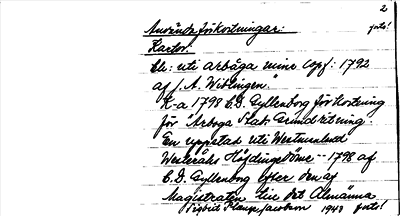 2
Använda förkortningar: foto!
Kartor:
Bl: uti Arboga minr copf: 1792
af J. A. Wiblingen."
K-a 1798 C.D. Gyllenborg förkortning
för "Arboga Stat Grundritning.
En uppstad uti Westmanland
Westerås Höfdingedöme -- 1798 af
C.D. Gyllenborg efter den af
Magistraten till det Allmänna
Sigbrit Plænge Jacobson 1943 foto!